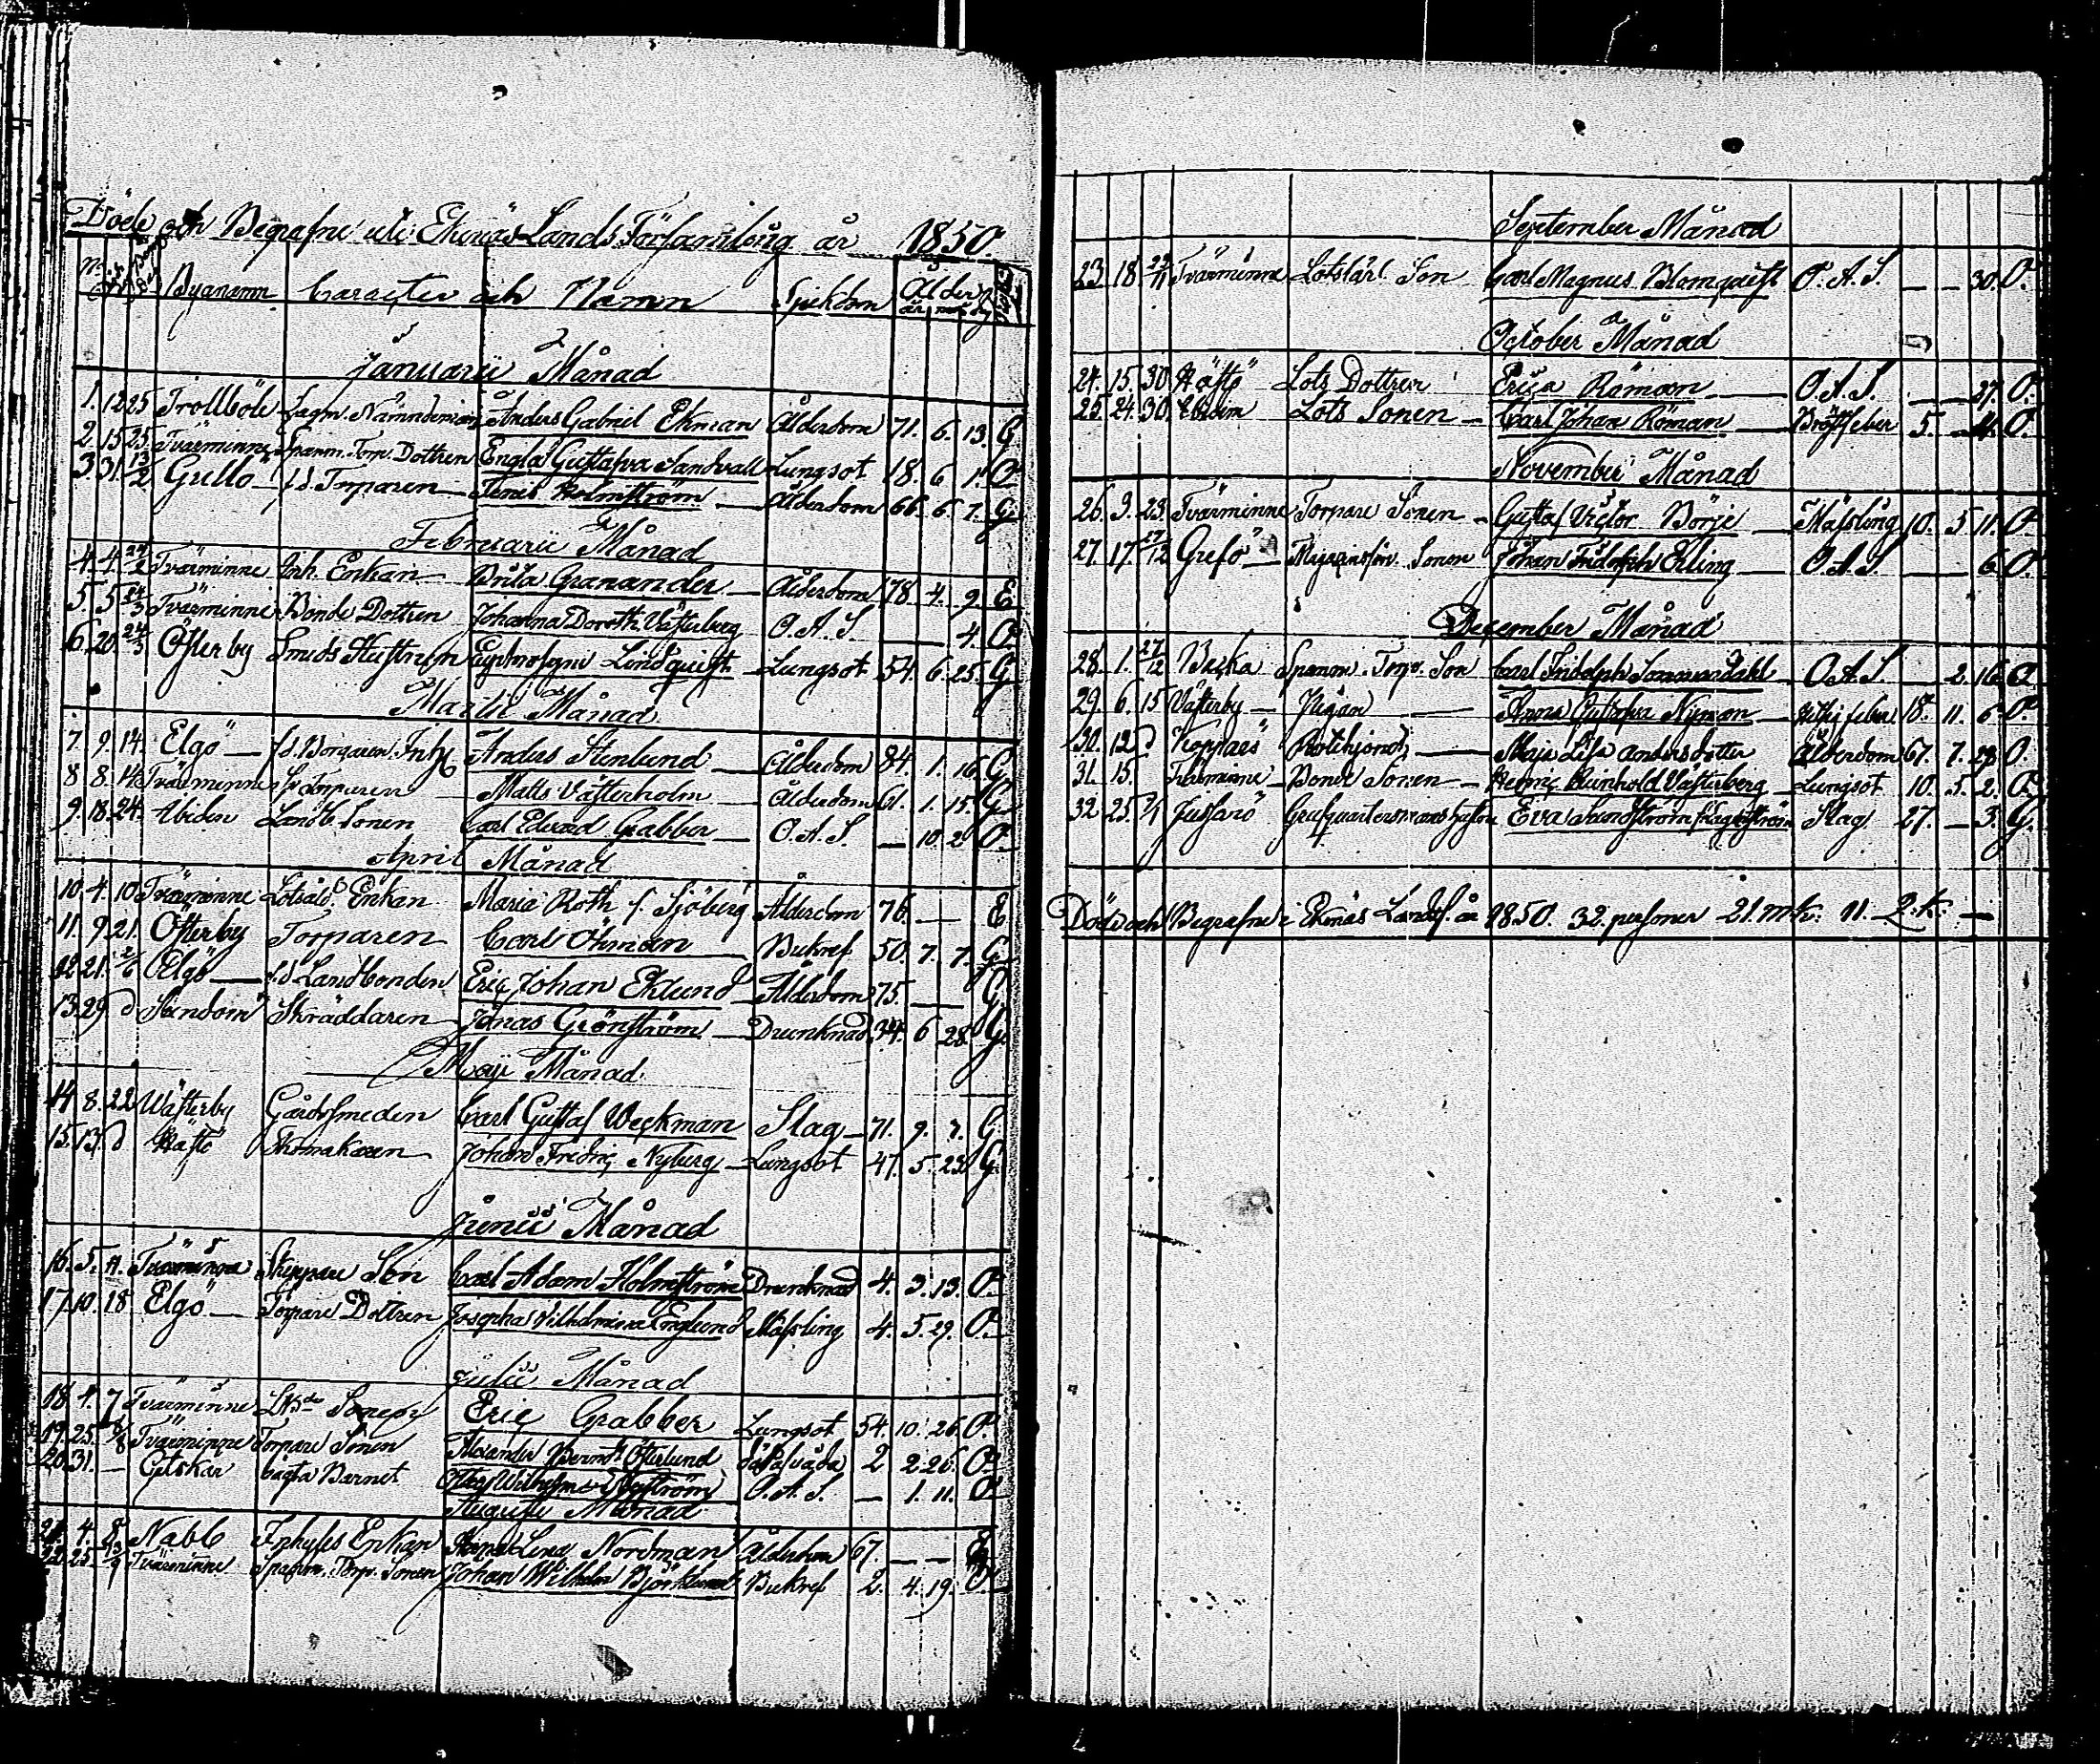 Döde och Begrafne uti Ekenäs Lands Församling år 1850.
No Byanamn Caracter och Namn Sjukdom Ålder år mån dg
Januarii Månad
1. 12 25 Trollböle Lagm. Nämndeman Anders Gabriel Ekman Ålderdom 71. 6. 13. G
2. 15 25 Tvärminne Spanm. Torp. Dottren Engla Gustafva Sandvall Lungsot 18. 6 1. O
3. 31. 13/2 Gullö f.d. Torparen Holmström Ålderdom 66. 6. 7. G.
Februarii Månad
4. 4. 24/2 Tvärminne Inh. Enkan Brita Granander Ålderdom 78. 4. 9. E
5. 5 24/3 Tvärminne Bonde Dottren Johanna Doroth. Västerberg O.A.S. 4. O.
6. 20. 24/3 Österby Smeds Hustrun Euphrosyne Lindquist Lungsot 54. 6. 25. G
Martii Månad
7. 9. 14. Elgö f.d. Borgaren. Inhs Anders Stenlund Ålderdom 84. 1. 16. G
8. 8. 14 Tvärminne f.d. Torparen Matts Västerholm Ålderdom 61. 1. 15. G
9. 18. 24. Landtb. Sonen Carl Edvard Grabber O.A.S. 10. 2 O.
April Månad
10. 4. 10 Tvärminne Lotsåld. Enkan Maria Roth f. Sjöberg Ålderdom 76. E
11. 9. 21. Österby Torparen Carl Öhman Bukref 50. 7. 7. G
12 21. 2/6 Elgö f.d. Landbonden Eric Johan Eklund Ålderdom 75. G.
13. 29. d Skräddaren Jonas Grönström Drunknad 34. 6 28. G.
Maji Månad.
14 8. 22 Wästerby Gårdssmeden Carl Gustaf Weckman Slag 71. 9. 7. G.
15. 13. d Hästö Skomakaren Johan Fredric Nyberg Lungsot 47. 5. 23. G
Junii Månad
16. 5. 11. Tvärminne Skeppare Son Carl Adam Holmström Drunknad 4. 3. 13. O.
17. 10. 18 Elgö Torpare Dottren Josepha Vilhelmina Englund Mässling 4. 5. 29. O.
Julii Månad
18. 4. 7 Tvärminne Sonen Eric Grabber Lungsot 54. 10. 26. O.
19. 25. Tvärminne Torpare Sonen Alexander Bernt Österlund 2 2 26. O.
20. 31. Oägta Barnet O.A.S. 1. 11. O
Augusti Månad
21. 4. 8 Nabb Inhyses Enkan Lena Nordman Ålderdom 67. E
22. 25 13/9 Tvärminne Spanm. Torp. Sonen Johan Wilhelm Björklund Bukref 2. 4. 19. O.
September Månad
23. 18. 22/11 Tvärminne Lotslärl. Son Carl Magnus Blomquist O.A.S. 30. O.
October Månad
24. 15. 30 Hästö Lots Dottren Erica Röman O.A.S. 27. O.
25. 24. 30. Lots Sonen Carl Johan Röman Bröstfeber 5. 4. O.
November Månad
26. 3. 23. Tvärminne Torpare Sonen Gustaf Victor Börje Mässling 10. 5 11. O
27. 17. 27/12 Grefsö Sonen Johan Fridolph Ekling O.A.S 6. O.
December Månad
28. 1. 27/12 Spanm. Torp. Son Carl Fridolph O.A.S 2. 16. O
29. 6. 15 Västerby Pigan Anna Gustafva Nyman feber 18. 11. 6 O.
30. 12 d Koppnäs Rotehjonet Maja Lisa Andersdotter Ålderdom 67. 7. 28 O.
31. 15. Tvärminne Bonde Sonen Henric Reinhold Västerberg Lungsot 10. 5. 2. O.
32 25. Jussarö Eva Sundström f. Slag 27. 3. G.
Döde och Begrafne i Ekenäs Landsf. år 1850. 32. personer 21. mk. 11 Q.k.